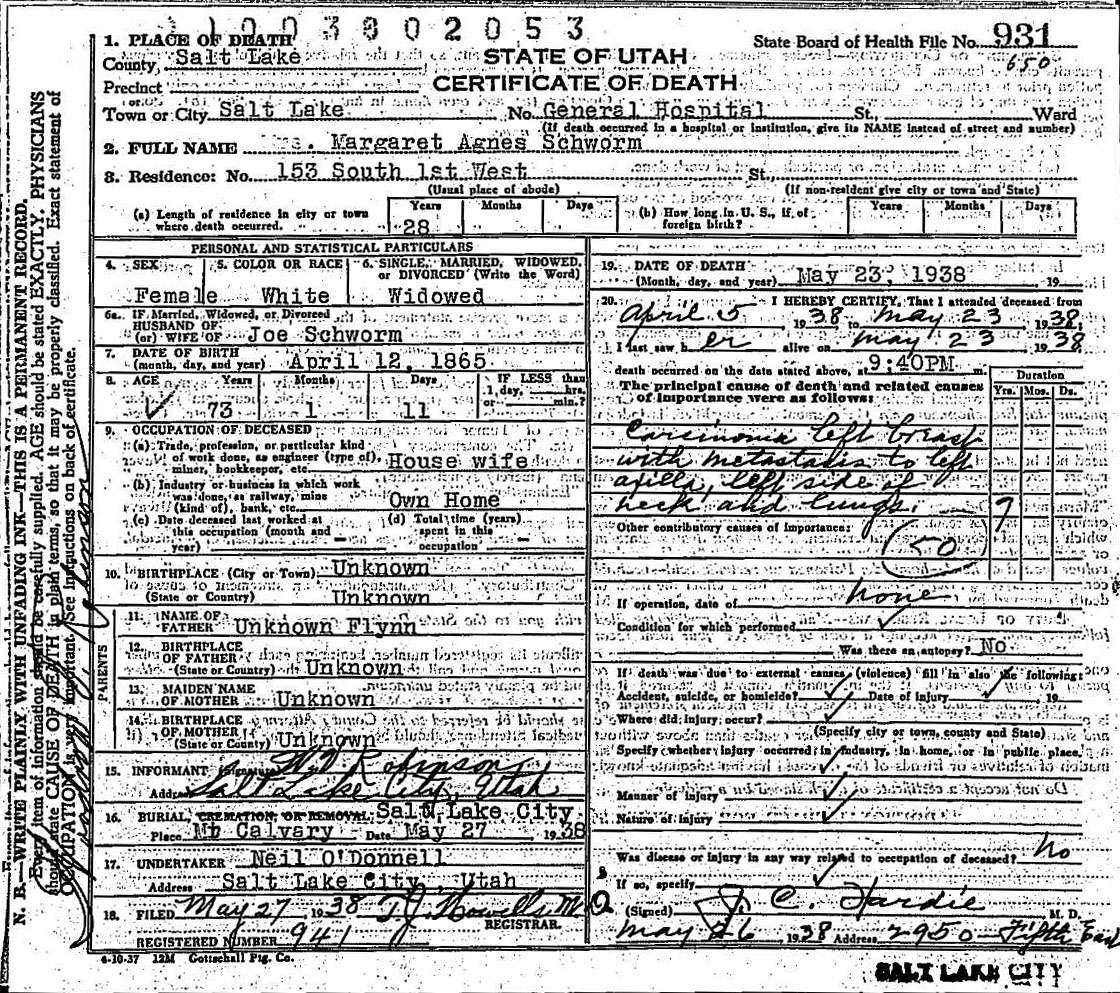 1003802053
1. PLACE OF DEATH
County, Salt Lake
STATE OF UTAH
State Board of Health File No. 931
650
Precinct
CERTIFICATE OF DEATH
Town or City Salt Lake No. General Hospital St., Ward
(If death occurred in a hospital or institution, give its NAME instead of street and number)
2. FULL NAME Margaret Agnes Schworm
3. Residence: No. 153 South 1st West St.,
(Usual place of abode) (If non-resident give city or town and State)
(a) Length of residence in city or town where death occurred. Years 28 Months Days
(b) How long in U. S., if of foreign birth? Years Months Days
PERSONAL AND STATISTICAL PARTICULARS
4. SEX Female
5. COLOR OR RACE White
6. SINGLE, MARRIED, WIDOWED, or DIVORCED (Write the Word) Widowed
6a. IF Married, Widowed, or Divorced
HUSBAND OF
(or) WIFE OF Joe Schworm
7. DATE OF BIRTH
(month, day, and year) April 12, 1865
8. AGE Years 73 Months 1 Days 11 IF LESS than 1 day, hrs. or min.?
9. OCCUPATION OF DECEASED
(a) Trade, profession, or particular kind of work done, as engineer (type of), miner, bookkeeper, etc. House wife
(b) Industry or business in which work was done, as railway, mine (kind of), bank, etc. Own Home
(c) Date deceased last worked at this occupation (month and year)
(d) Total time (years) spent in this occupation
10. BIRTHPLACE (City or Town) Unknown
(State or Country) Unknown
PARENTS
11. NAME OF FATHER Unknown Flynn
12. BIRTHPLACE OF FATHER
(State or Country) Unknown
13. MAIDEN NAME OF MOTHER Unknown
14. BIRTHPLACE OF MOTHER
(State or Country) Unknown
15. INFORMANT (Signature) Robinson
Address Salt Lake City, Utah
16. BURIAL, CREMATION, OR REMOVAL Salt Lake City
Place Mt Calvary Date May 27 1938
17. UNDERTAKER Neil O'Donnell
Address Salt Lake City, Utah
18. FILED May 27 1938 T. J. Howells M
REGISTRAR.
REGISTERED NUMBER 941
4-10-37 12M Gottschall Ptg. Co.
19. DATE OF DEATH
(Month, day, and year) May 23, 1938 19
20. I HEREBY CERTIFY, That I attended deceased from
April 5 1938 to May 23 1938,
I last saw her alive on May 23 1938
death occurred on the date stated above, at 9:40PM m.
The principal cause of death and related causes of importance were as follows:
Duration
Yrs. Mos. Ds.
Carsinoma left breast
with metastasis to left
axilla, left side of
neck and lungs. 7
Other contributory causes of importance:
(50)
If operation, date of None
Condition for which performed
Was there an autopsy? No
If death was due to external causes (violence) fill in also the following:
Accident, suicide, or homicide? Date of injury 19
Where did injury occur?
(Specify city or town, county and State)
Specify whether injury occurred in industry, in home, or in public place.
Manner of injury
Nature of injury
Was disease or injury in any way related to occupation of deceased? No
If so, specify
(Signed) J. C. Hardie M. D.
May 26 1938 Address 2950 Fifth East
SALT LAKE CITY
N. B.—WRITE PLAINLY WITH UNFADING INK—THIS IS A PERMANENT RECORD.
Every item of information should be carefully supplied. AGE should be stated EXACTLY. PHYSICIANS
should state CAUSE OF DEATH in plain terms, so that it may be properly classified. Exact statement of
OCCUPATION is very important. (See instructions on back of certificate.